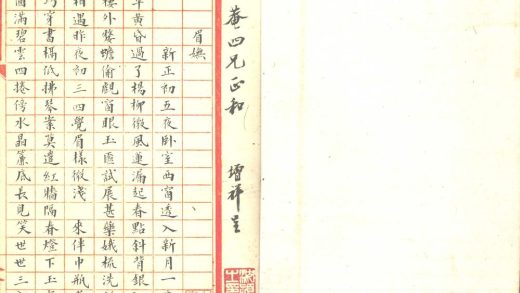 菴四兄正和 增祥呈
眉嫵
新正初五夜卧室西窗透入新月一
黃昏過了楊柳微風連漏起春點斜背銀
樓外婺蟾偷覷窗眼玉匳試展甚藥娥梳洗
相遇昨夜初三四覺眉樣微淺 來伴巾瓶
巧穿書槅低拂琴案莫遣紅牆隔春燈下玉
圓滿碧雲四捲傍水晶簾底長見笑世世三